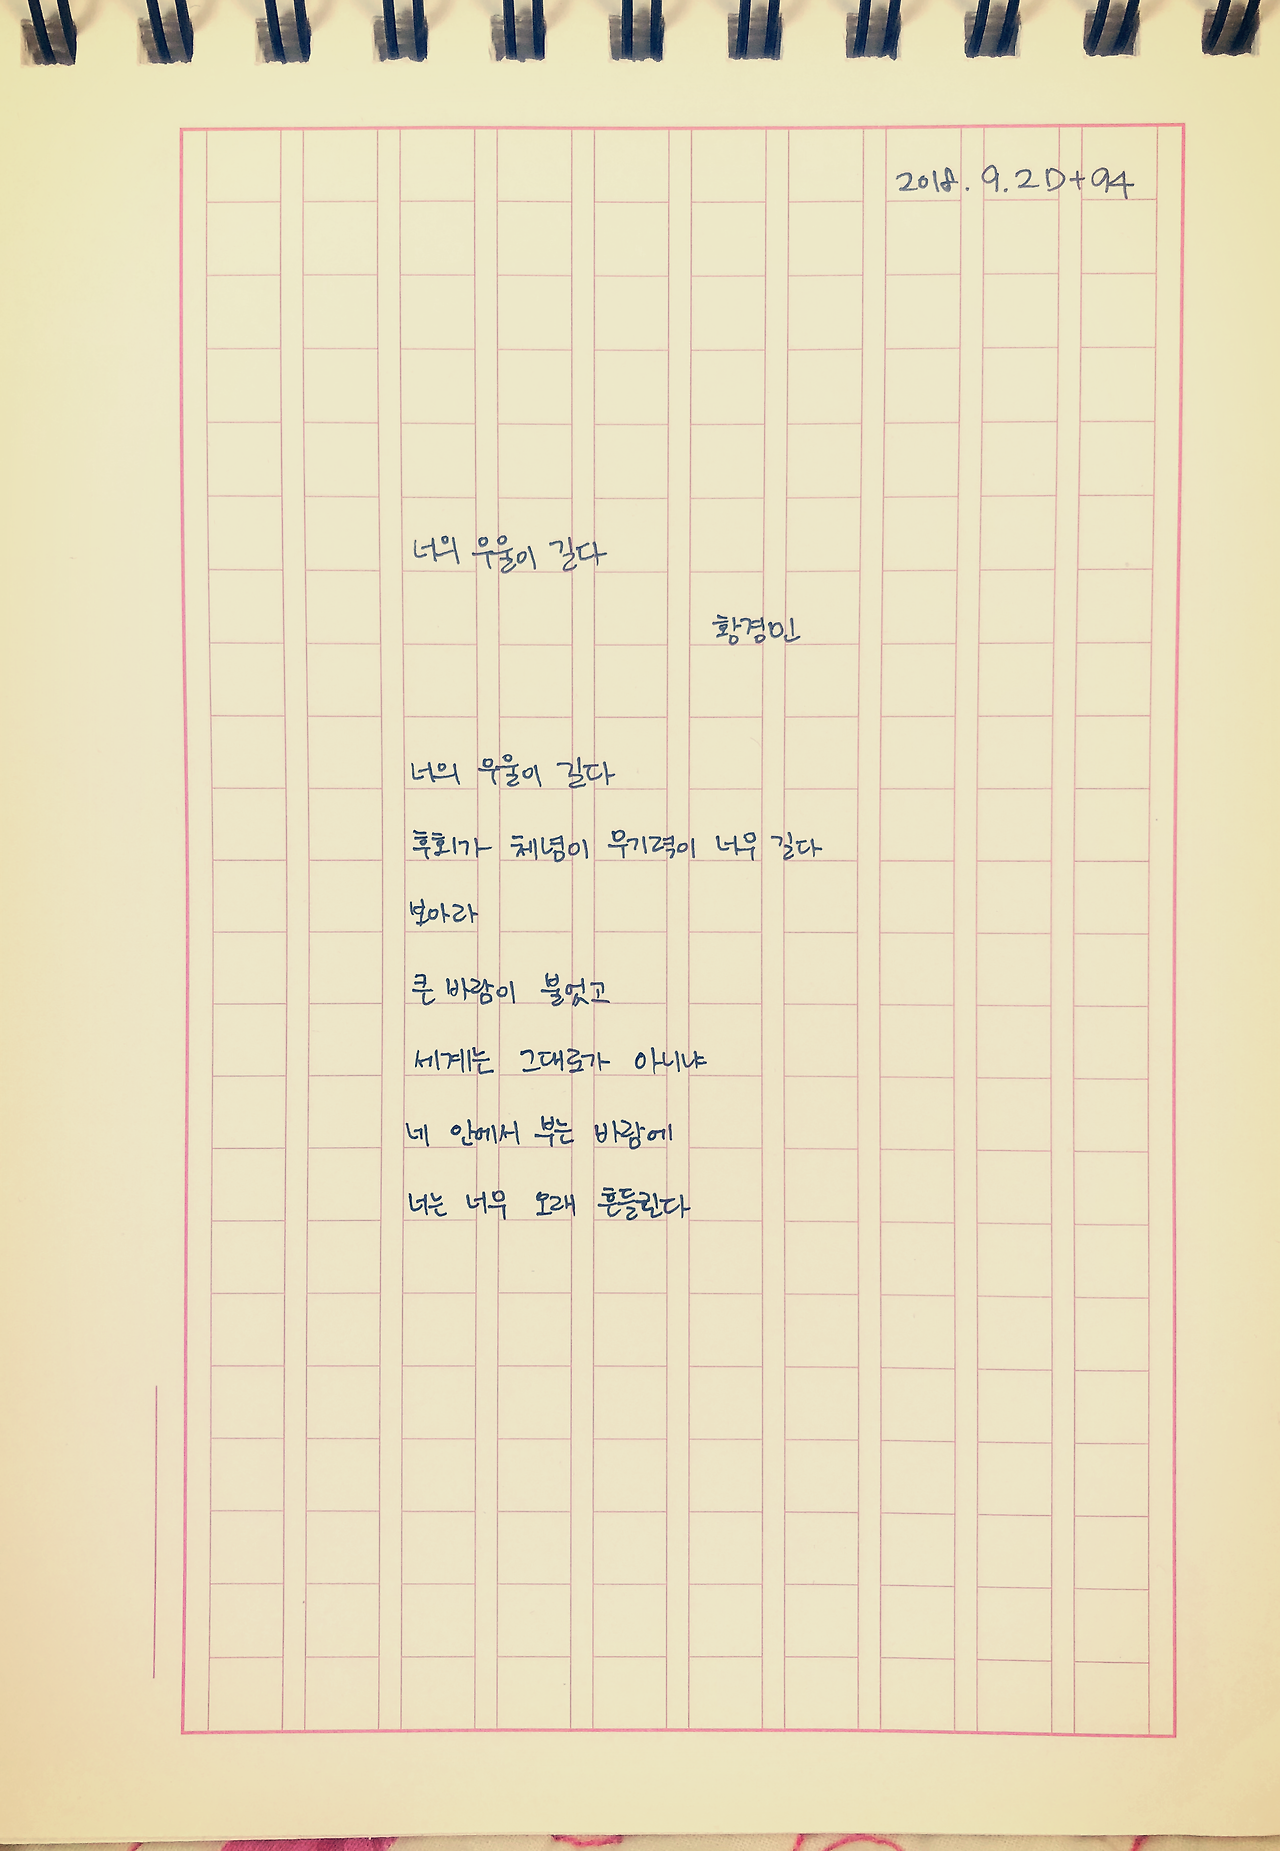 2018. 9. 2 D+94
너의 우울이 길다
황경민
너의 우울이 길다
후회가 체념이 무기력이 너무 길다
보아라
큰 바람이 불었고
세계는 그대로가 아니냐
네 안에서 부는 바람에
너는 너무 오래 흔들린다